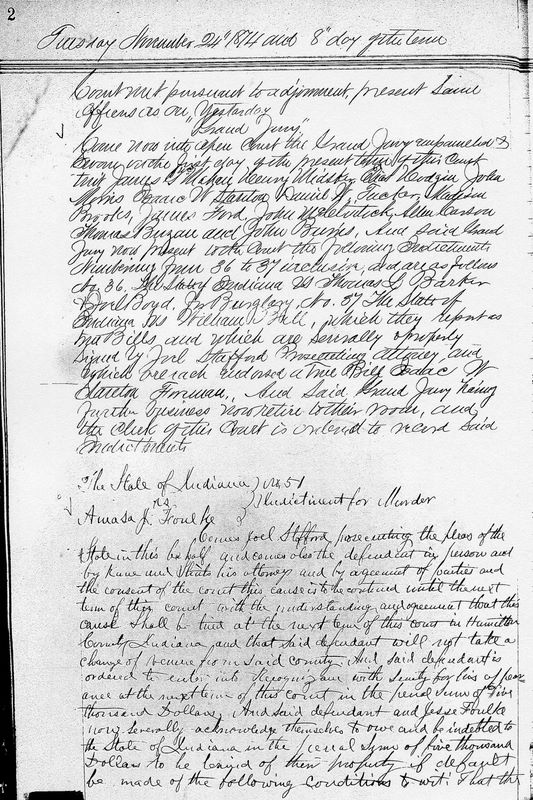 2
Tuesday November 24" 1874 and 8" day of the term
Court met pursuant to adjornment, present Same
Officers as on Yesterday
"Grand Jury"
Come now into open Court the Grand Jury empaneled &
Sworn on the first day of the present term of this Court
towit James Henry John
Morris Isaac W Stanton Daniel W. Tucker, Madison
Brooks, James Ford, John Allen Carson
Thomas and John Burns, And said Grand
Jury now present to the Court the following Indictments
Numbering from 36 to 37 inclusive, and are as follows
No 36. The State of Indiana vs Thomas G Barker
& Joel Boyd. For Burglary, No. 37 The State of
Indiana vs William Hall, which they report as
true Bills and which are severally properly
signed by Joel Stafford Prosecuting attorney and
which are each endorsed a true Bill Isaac W
Stanton Foreman,. And Said Grand Jury having
further business now retire to their room, and
the Clerk of this Court is ordered to record said
Indictments
The State of Indiana ) No 51
vs ) Indictment for Murder
Amasa J. Foulke
Comes Joel Stafford prosecuting the pleas of the
State in this behalf and comes also the defendant in person and
by Kane and his attorney and by agreement of parties and
the consent of the court this cause is to be continued until the next
term of this court with the understanding and agreement that this
cause shall be tried at the next term of this court in Hamilton
County Indiana, and that said defendant will not take a
change of venue from said county, And said defendant is
ordered to enter into recognizance with surity for his appear
ance at the next term of this court in the penal sum of Five
thousand Dollars, And said defendant and Jesse Foulke
now severally acknowledge themselves to owe and be indebted to
the State of Indiana in the penal sum of five thousand
Dollars to be levied of their property if default
be made of the following conditions to wit: That the